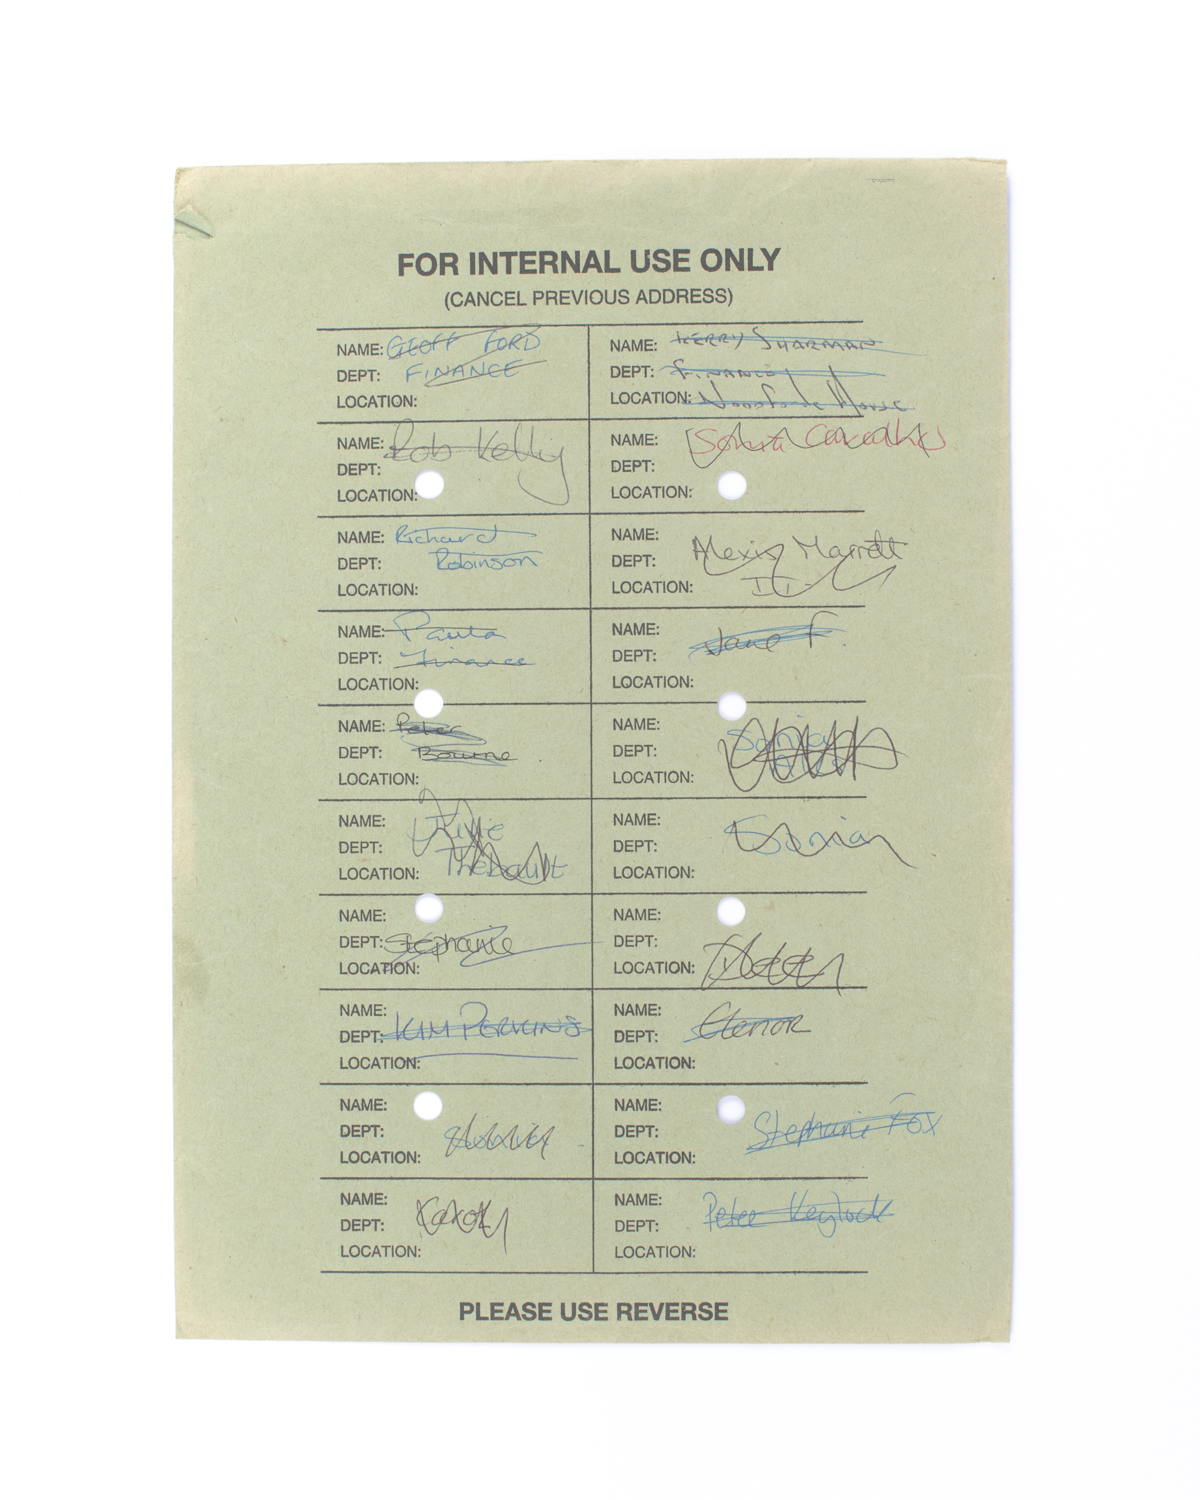 FOR INTERNAL USE ONLY
(CANCEL PREVIOUS ADDRESS)
NAME: GEOFF FORD
DEPT: FINANCE
LOCATION:
NAME: KERRY SHARMAN
DEPT: FINANCE
LOCATION: House
NAME: Rob Kelly
DEPT:
LOCATION:
NAME:
DEPT:
LOCATION:
NAME: Richard
DEPT: Robinson
LOCATION:
NAME: Alexis Marrett
DEPT:
LOCATION: IT
NAME: Paula
DEPT: Finance
LOCATION:
NAME: Jane F.
DEPT:
LOCATION:
NAME: Peter
DEPT: Bourne
LOCATION:
NAME: Sonia
DEPT:
LOCATION:
NAME: Julie
DEPT:
LOCATION: Thebault
NAME:
DEPT: Sonia
LOCATION:
NAME:
DEPT: Stephanie
LOCATION:
NAME:
DEPT:
LOCATION:
NAME:
DEPT: KIM PERKINS
LOCATION:
NAME:
DEPT: Elenor
LOCATION:
NAME:
DEPT:
LOCATION:
NAME:
DEPT: Stephanie Fox
LOCATION:
NAME:
DEPT:
LOCATION:
NAME: Peter Keylock
DEPT:
LOCATION:
PLEASE USE REVERSE